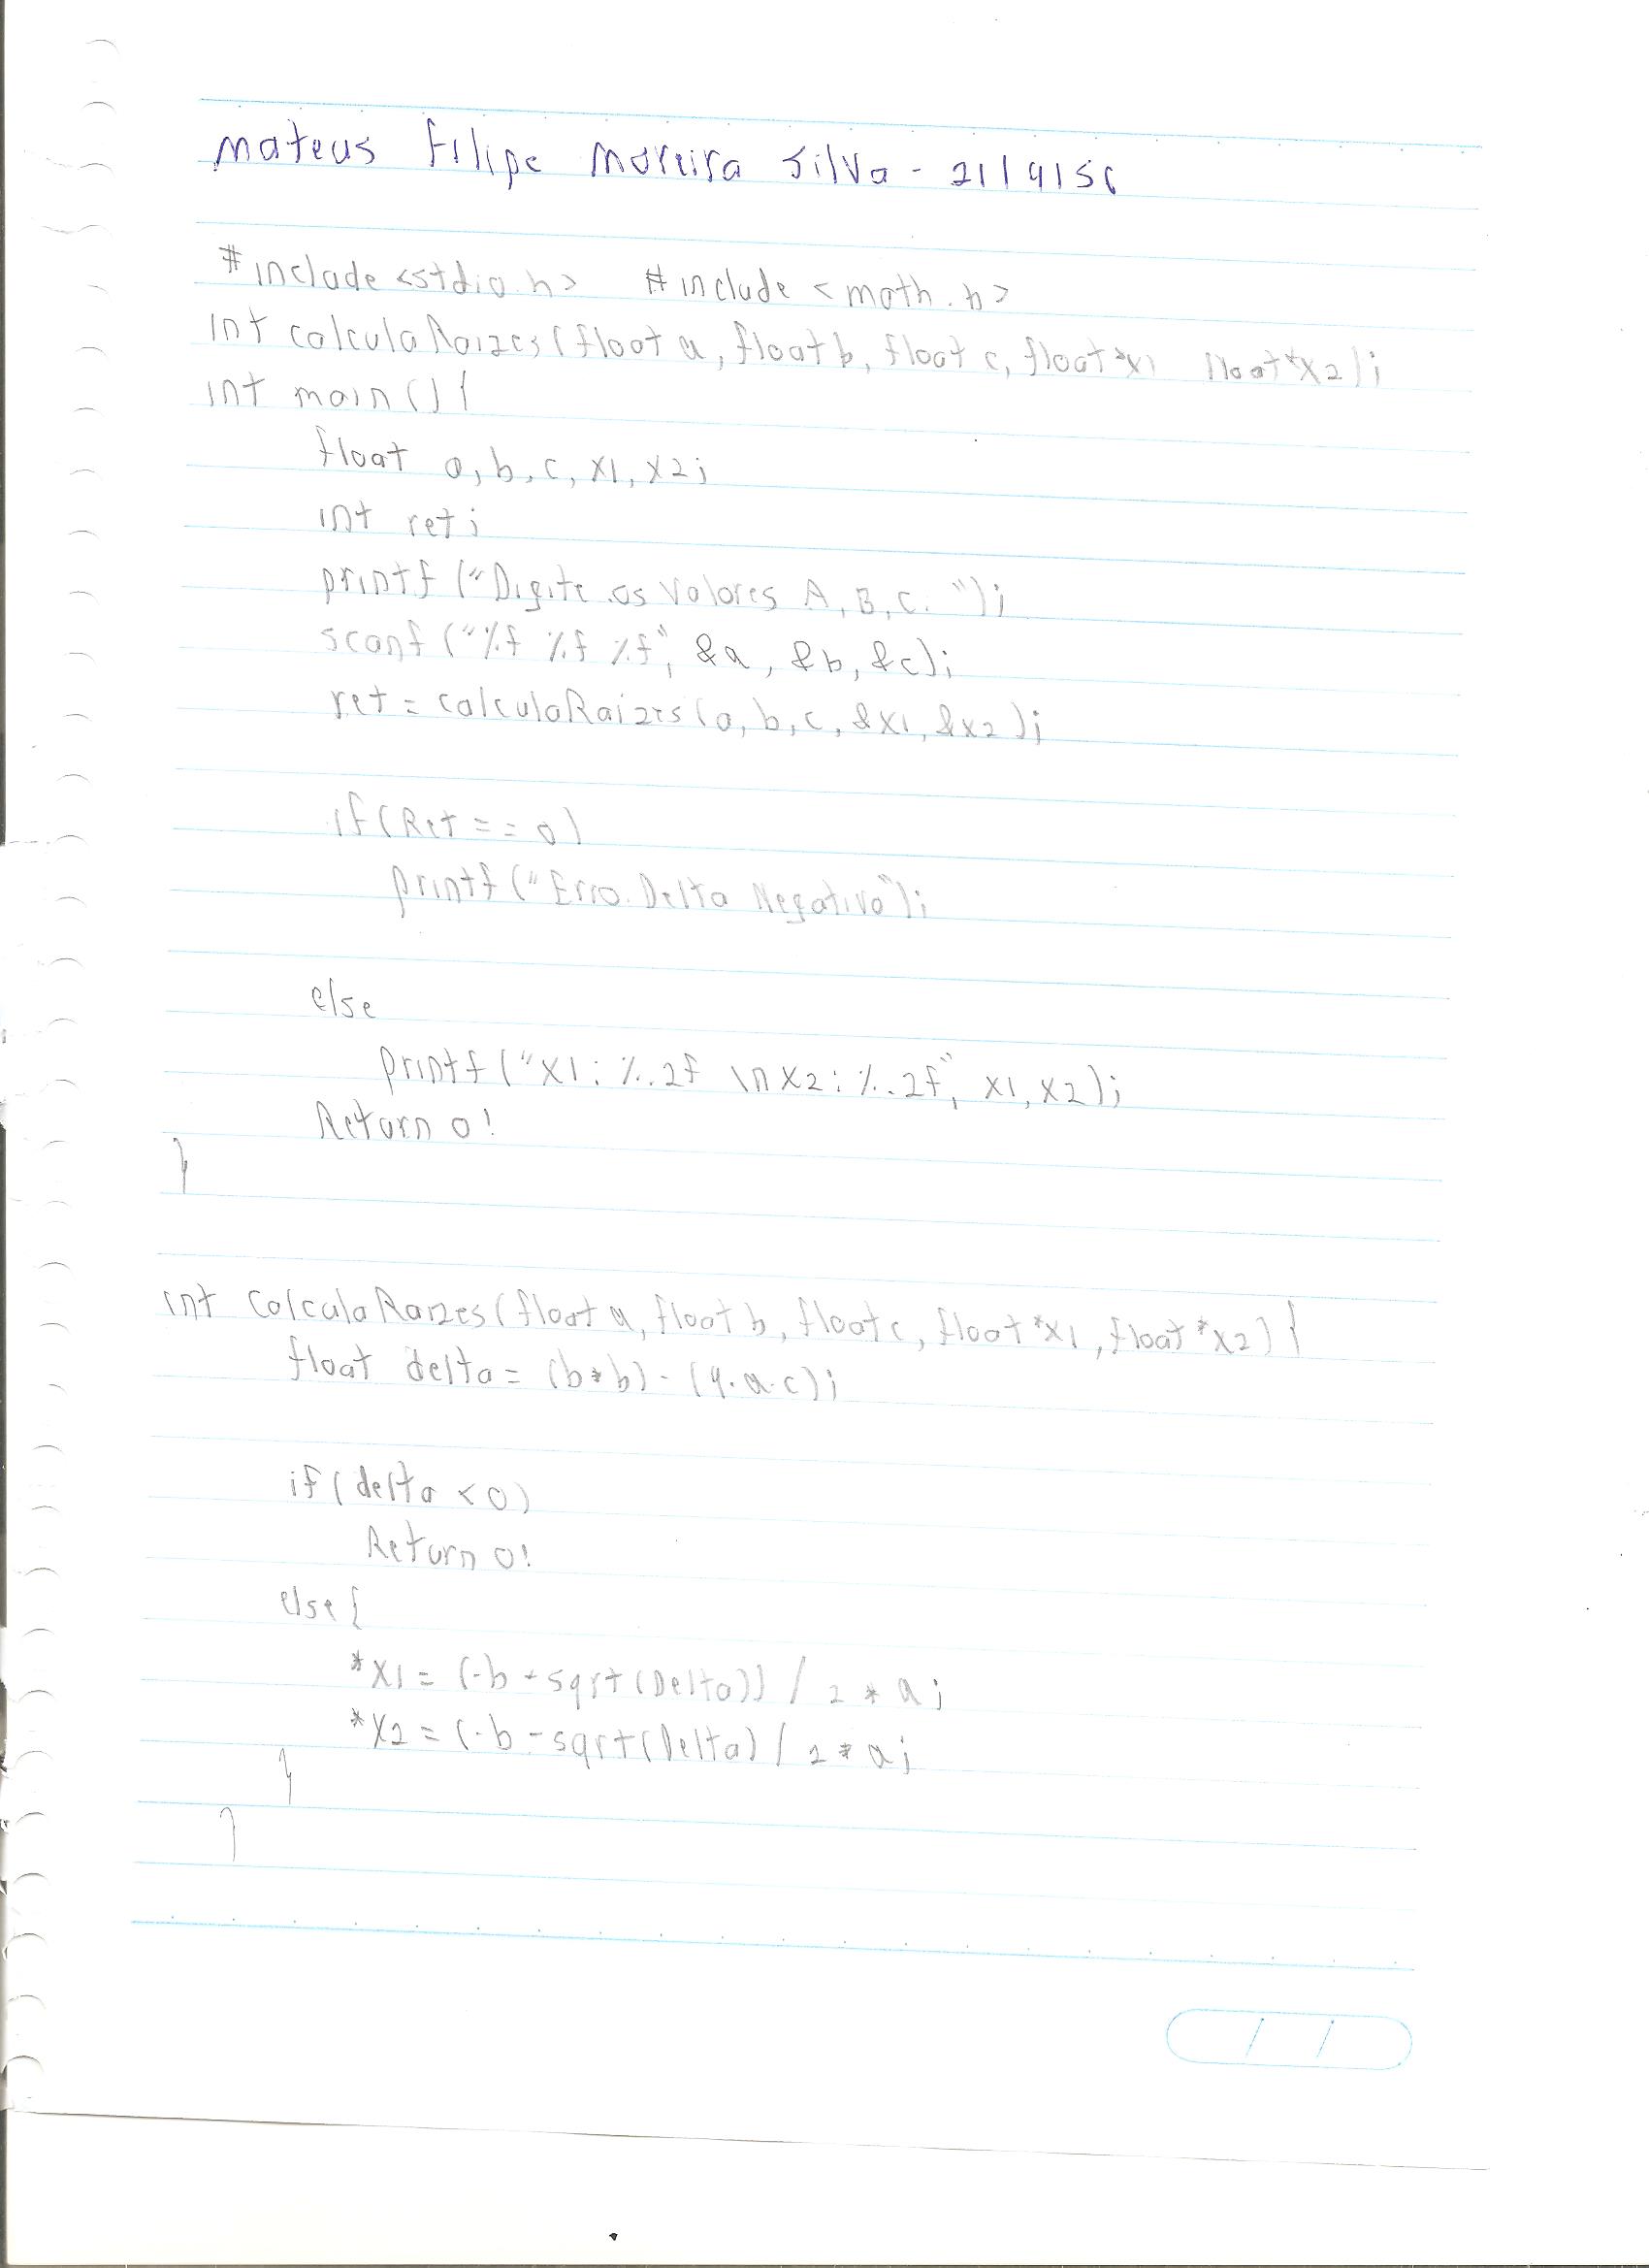 Mateus Filipe Moreira Silva - 2114156
#include <stdio.h> #include <math.h>
int calculaRaizes(float a, float b, float c, float *x1 float *x2);
int main(){
float a, b, c, x1, x2;
int ret;
printf("Digite os Valores A, B, C. ");
scanf("%f %f %f", &a, &b, &c);
ret = calculaRaizes(a, b, c, &x1, &x2);
if(Ret == 0)
printf("Erro. Delta Negativo");
else
printf("X1: %.2f \n X2: %.2f", x1, x2);
Return 0!
}
int CalculaRaizes(float a, float b, float c, float *x1, float *x2){
float delta = (b*b) - (4.a.c);
if(delta < 0)
Return 0!
else{
*X1 = (-b + sqrt(Delta)) / 2 * a;
*X2 = (-b - sqrt(Delta) / 2 * a;
}
}